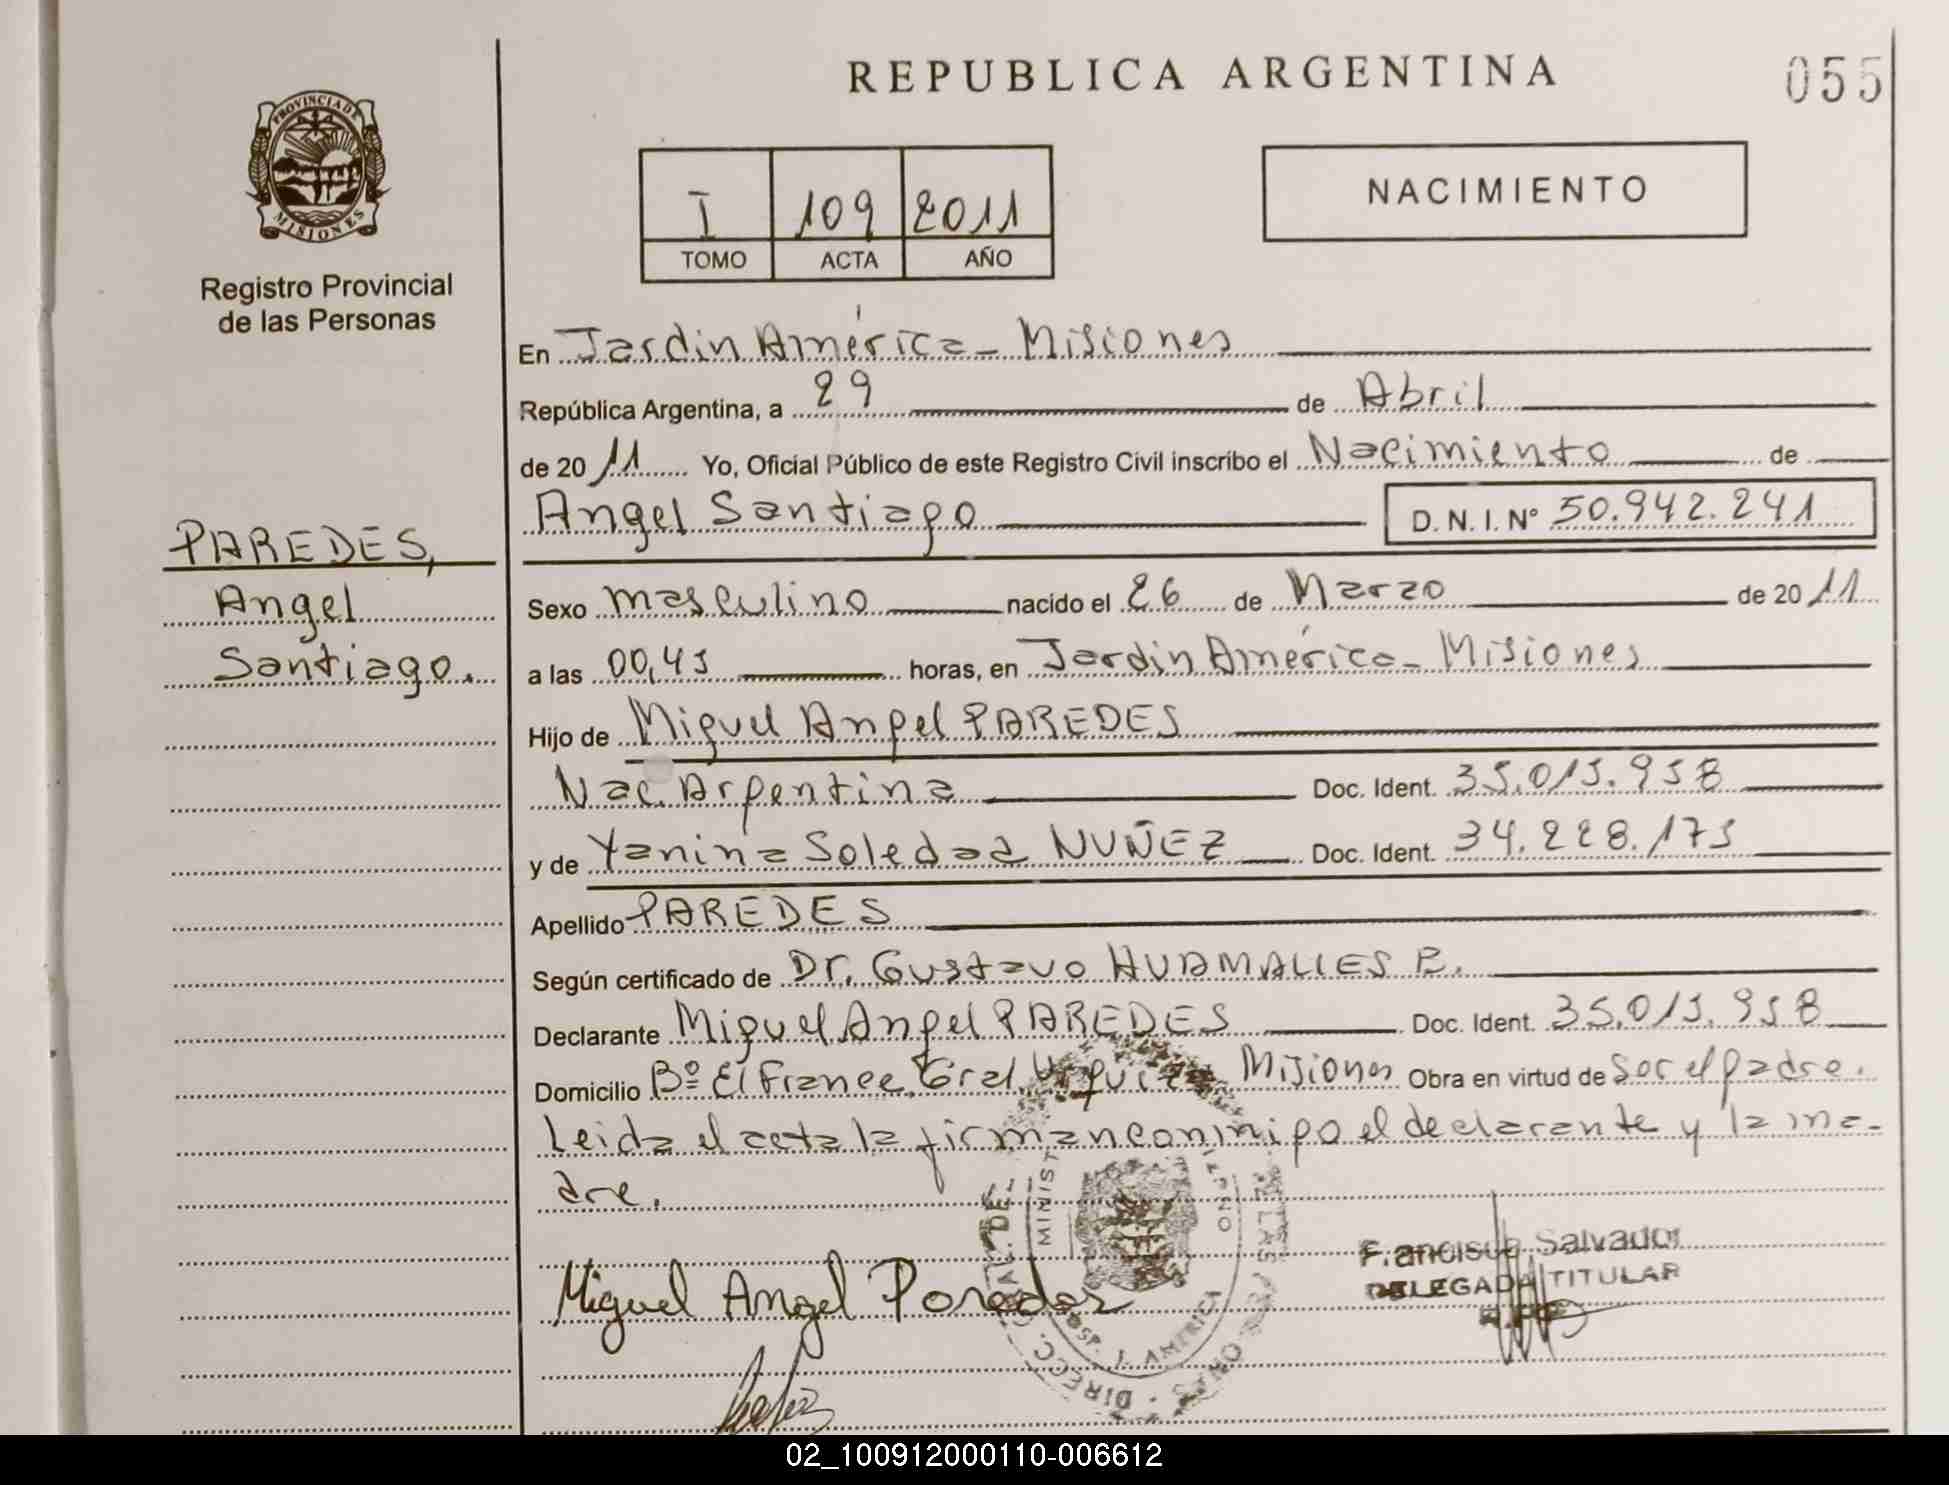 REPUBLICA ARGENTINA
055
PROVINCIA DE
MISIONES
Registro Provincial
de las Personas
I 109 2011
TOMO ACTA AÑO
NACIMIENTO
En Jardín América - Misiones
República Argentina, a 29 de Abril
de 2011 Yo, Oficial Público de este Registro Civil inscribo el Nacimiento de
Angel Santiago D. N. I. Nº 50.942.241
PAREDES,
Angel
Santiago.
Sexo masculino nacido el 26 de Marzo de 2011
a las 00,45 horas, en Jardín América - Misiones
Hijo de Miguel Angel PAREDES
Nac. Argentina Doc. Ident. 35.015.958
y de Yanina Soledad NUÑEZ Doc. Ident. 34.228.175
Apellido PAREDES
Según certificado de Dr. Gustavo HUAMALIES R.
Declarante Miguel Angel PAREDES Doc. Ident. 35.015.958
Domicilio Bº El France, Gral. Urquiza Misiones Obra en virtud de ser el padre.
Leida el acta la firman conmigo el declarante y la ma-
dre.
Miguel Angel Paredes
Salvador
DELEGADA TITULAR
DIRECC. GRAL. DE LAS
MINIST
HOSP. J. AMERICA
02_100912000110-006612